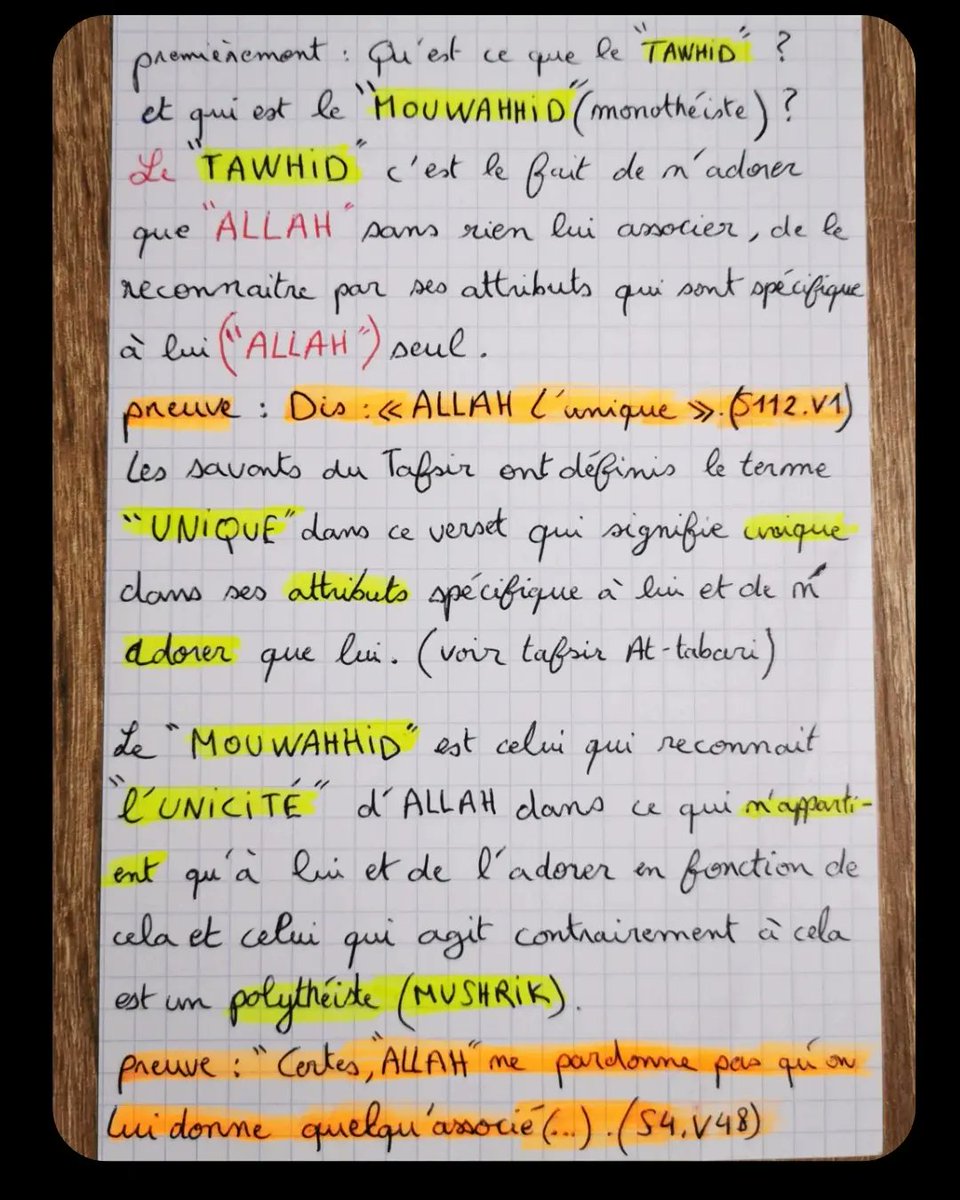 premièrement : Qu'est ce que le "TAWHiD" ?
et qui est le "MOUWAHHiD" (monothéiste) ?
Le "TAWHiD" c'est le fait de n'adorer
que "ALLAH" sans rien lui associer, de le
reconnaitre par ses attributs qui sont spécifique
à lui ("ALLAH") seul.
preuve : Dis : « ALLAH l'unique ». (S112.V1)
Les savants du Tafsir ont définis le terme
"UNiQUE" dans ce verset qui signifie unique
dans ses attributs spécifique à lui et de n'
adorer que lui. (voir tafsir At-tabari)
Le "MOUWAHHiD" est celui qui reconnait
"l'UNiCiTÉ" d'ALLAH dans ce qui n'apparti-
ent qu'à lui et de l'adorer en fonction de
cela et celui qui agit contrairement à cela
est un polythéiste (MUSHRiK).
preuve : "Certes, "ALLAH" ne pardonne pas qu'on
Lui donne quelqu'associé (...). (S4.V48)